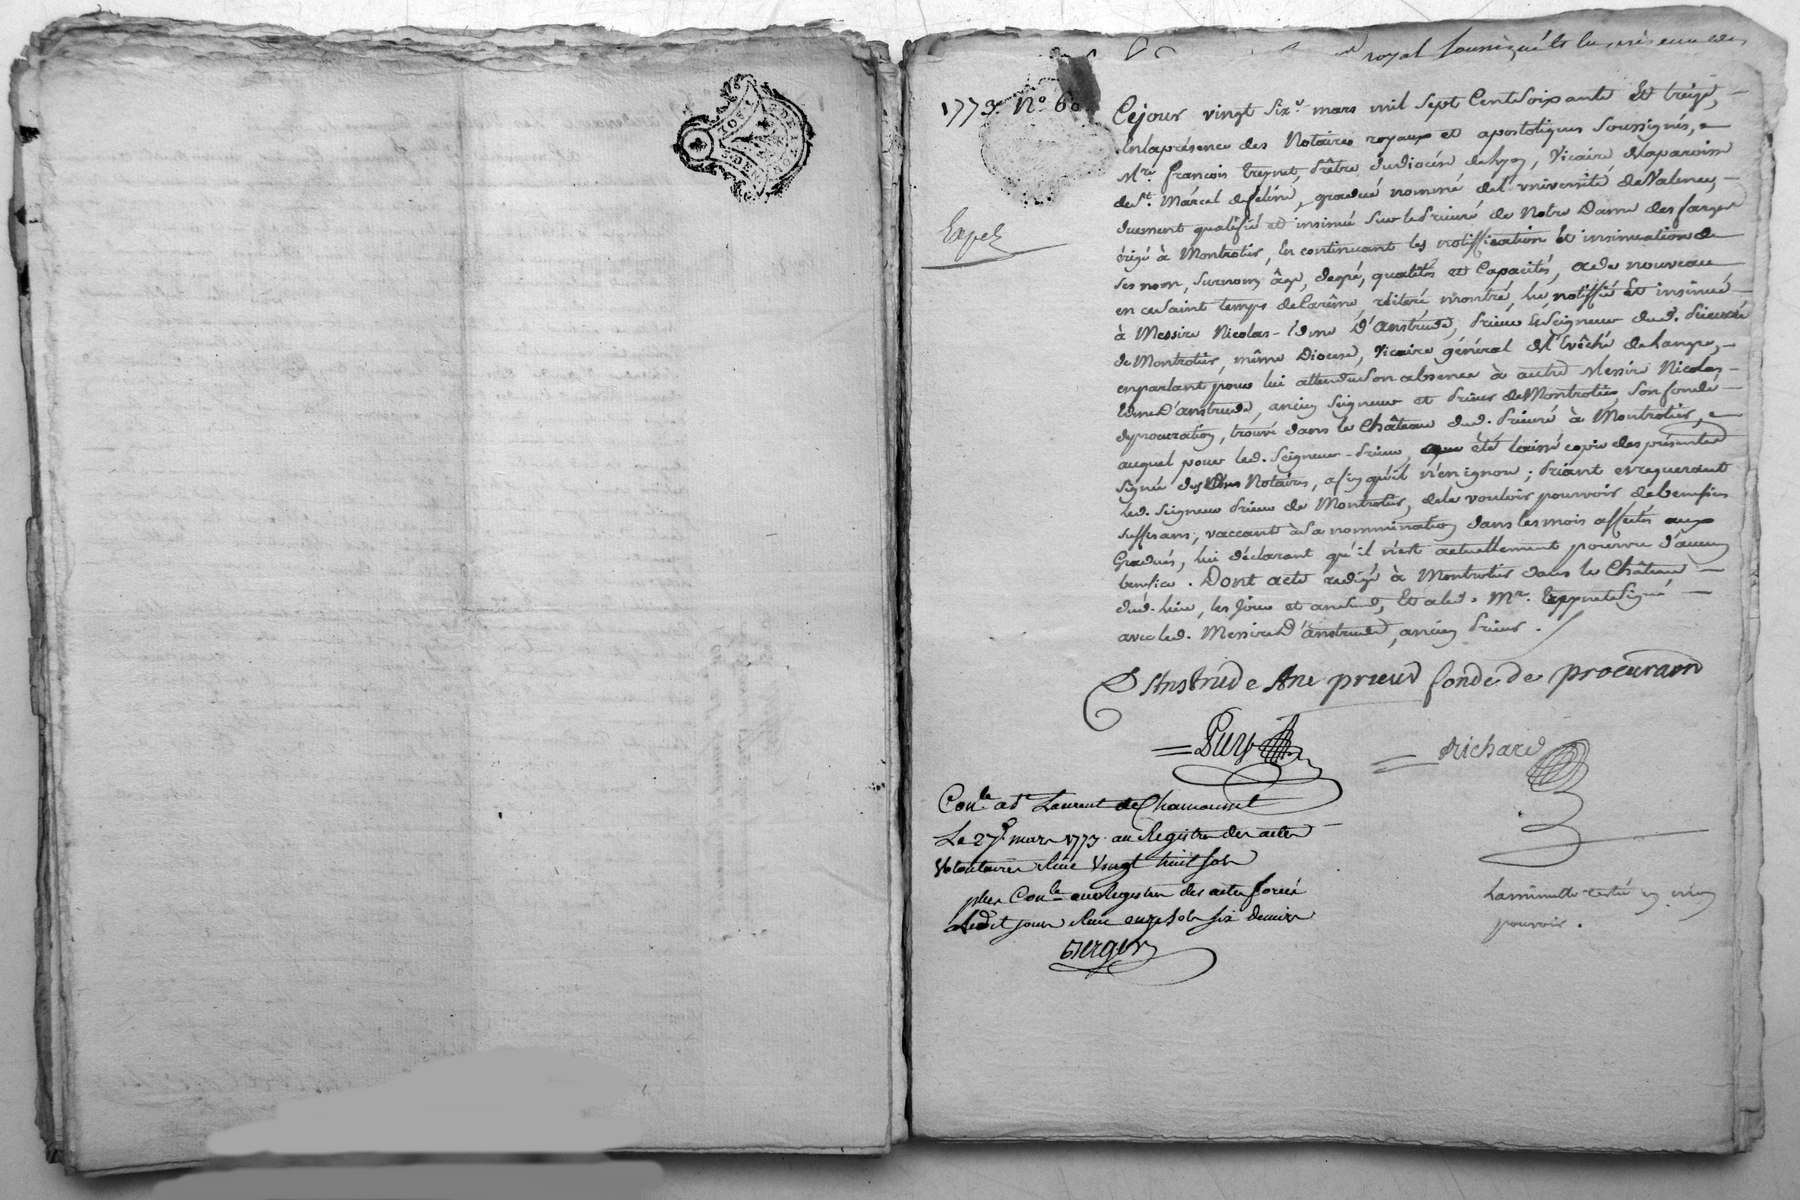 royal soussigné et les
1773. N° 60
Expéd.
Cejour vingt six.e mars mil sept Centsoixante Et treize,
Enlaprésence des Notaires royaux et apostoliques soussignés,
Mre. françois treynet, Prêtre dudiocése delyon, Vicaire delaparoisse
de St. Marcel defeline, gradué nommé del'université deValence,
duement qualifié et insinué Sur lePrieuré de Notre Dame des farges
érigé à Montrotier, En continuant les notiffication Et insinuation de
ses nom, surnom, âge, degré, qualités et Capacités, ade nouveau
en cesaint temps deCarême réiteré montré, lu notiffié Et insinué
à Messire Nicolas-Edme D'anstrude, Prieur Et Seigneur dud. Prieuré
de Montrotier, même Diocese, Vicaire général del'Evêché deLangre,
enparlant pour lui attendu Son absence à autre Messire Nicolas
Edme D'anstrude, ancien Seigneur et Prieur de Montrotier, son fondé
deprocuration, trouvé dans le Château dud. Prieuré à Montrotier,
auquel pour led. Seigneur-Prieur, été laissé copie des présentes
signée des Notaires, afin qu'il n'en ignore; Priant et requerant
led. Seigneur Prieur de Montrotier, de le vouloir pourvoir debenefices
suffisans, vaccant àSa nommination dans lesmois affectés aux
Gradués, lui déclarant qu'il n'est actuellement pourvu d'aucun
benefice. Dont acte redigé à Montrotier dans le Château
dud. lieu, les Jour et an susd, Et aled. Mre. treynet Signé
avec led. Messire D'anstrude, ancien Prieur.
D'Anstrude Anc prieur fondé de procuraon
Puy
Richard
Conlé a St Laurent de Chamousset
Le 27e. mars 1773 au Registre des actes
Volontaires Reçu Vingt huit sols
plus Conlé au Registre des actes forcés
Ledit jour Reçu onze sols six deniers
Berger
La minutte restée en mon
pouvoir.